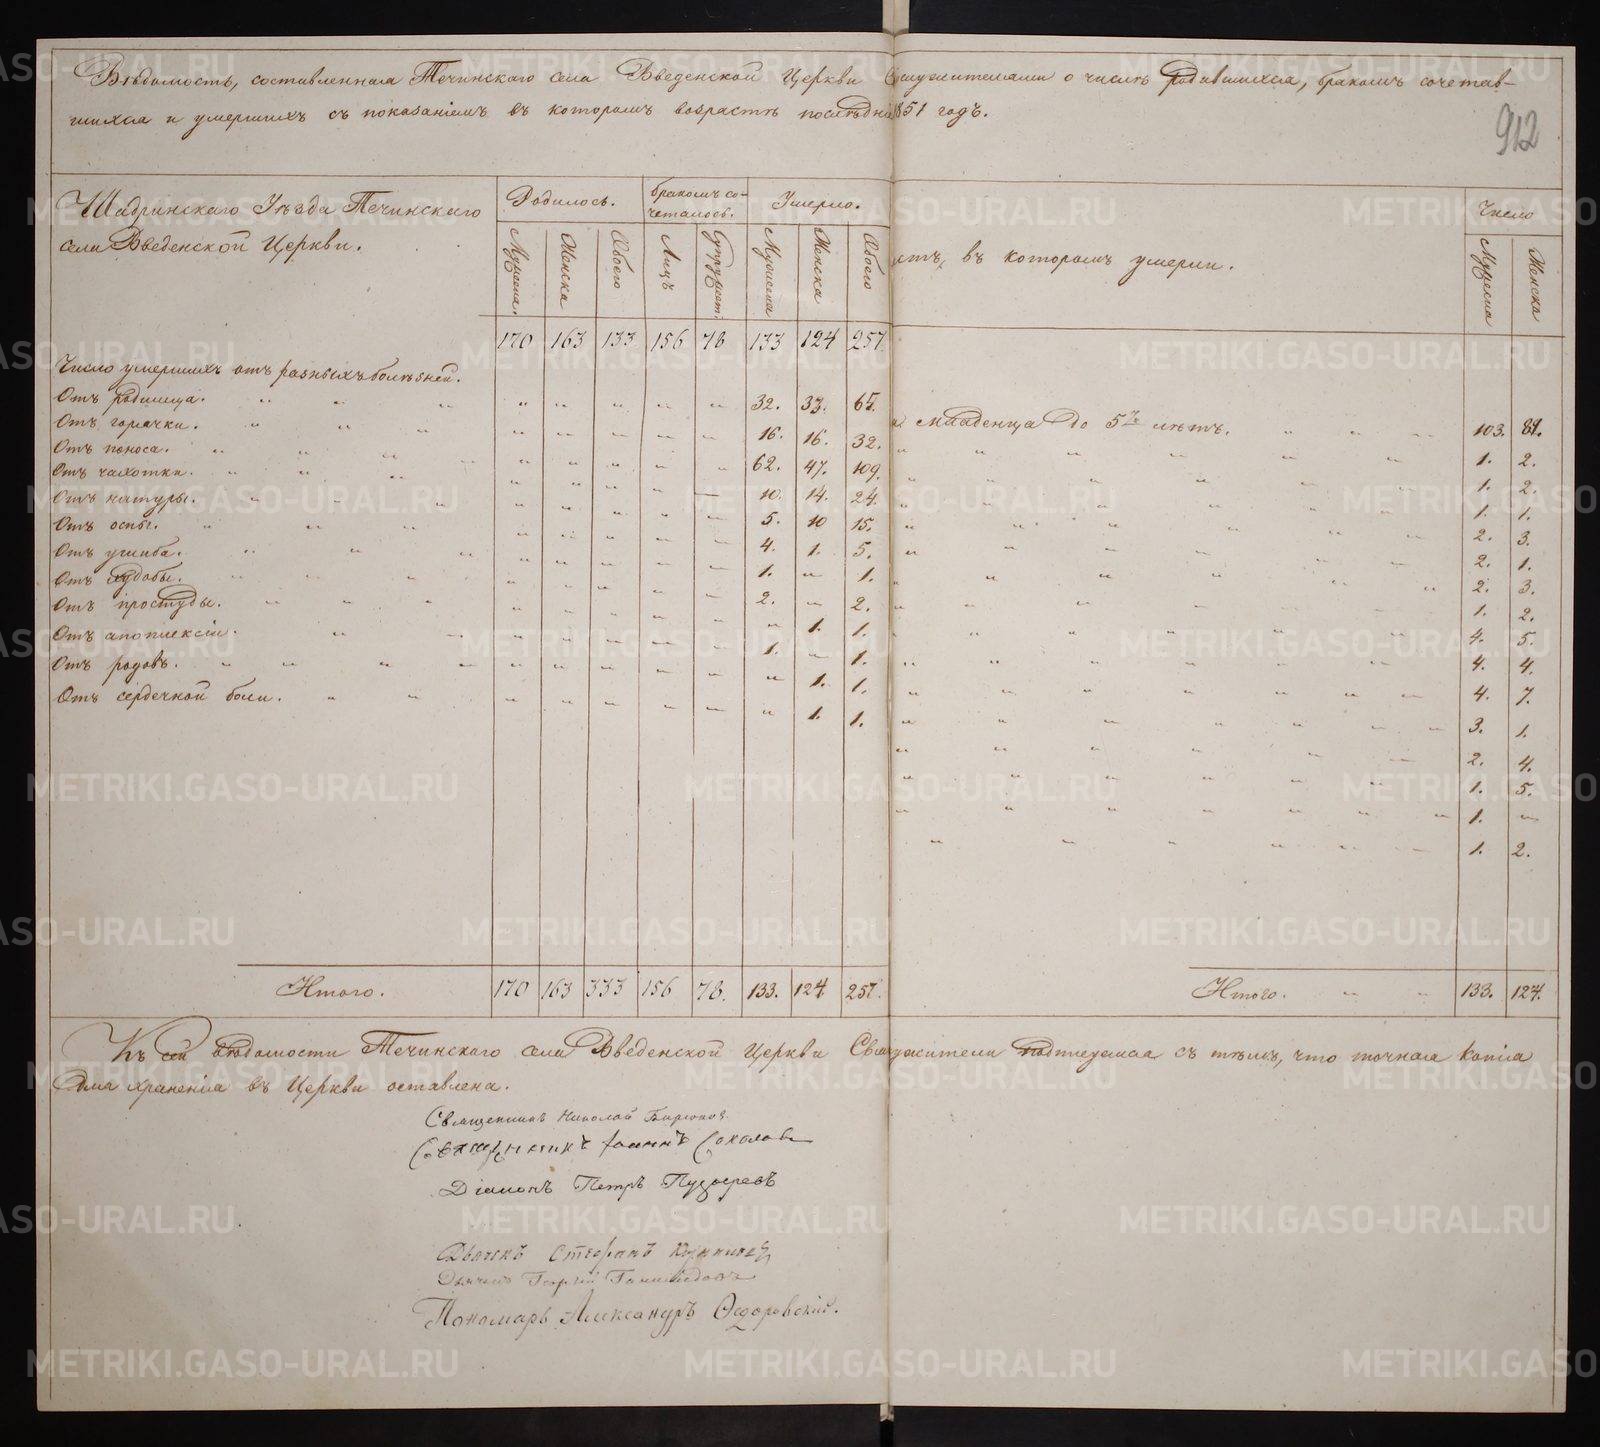 Вѣдомость, составленная Теченскаго села Введенской Церкви Священнослужителями о числѣ родившихся, бракомъ сочетав-
шихся и умершихъ съ показаніемъ въ которомъ возрастѣ послѣдн 1851 годъ.
912
Шадринскаго Уѣзда Теченскаго
села Введенской Церкви.
Родилось. бракомъ со-
четалось. Умерло.
Мужеска. Женска Обоего Лицъ Супружест. Мужеска Женска Обоего
Число
Мужеска Женска
лѣтъ, въ которомъ умерли.
170 163 133 156 78 133 124 257.
Число умершихъ отъ разныхъ болѣзней.
Отъ родимца. 32. 33. 65.
Отъ горячки. 16. 16. 32.
Отъ поноса. 62. 47. 109.
Отъ чахотки. 10. 14. 24.
Отъ натуры. 5. 10 15.
Отъ оспы. 4. 1. 5.
Отъ ушиба. 1. " 1.
Отъ худобы. 2. " 2.
Отъ простуды. " 1. 1.
Отъ апоплексіи. 1. " 1.
Отъ родовъ. " 1. 1.
Отъ сердечной боли. " 1. 1.
младенца до 5ти лѣтъ. 103. 81.
1. 2.
1. 2.
1. 1.
2. 3.
2. 1.
2. 3.
1. 2.
4. 5.
4. 4.
4. 7.
3. 1.
2. 4.
1. 5.
1. "
1. 2.
Итого. 170 163 333 156 78. 133. 124 257.
Итого. 133. 124.
Къ сей вѣдомости Теченскаго села Введенской Церкви Священнослужители подписуемся съ тѣмъ, что точная копія
для храненія въ Церкви оставлена.
Священникъ Николай Бирюков
Священникъ Іоаннъ Соколовъ
Діаконъ Петръ Пузыревъ
Дьячекъ Стефанъ
Дьячекъ Георгій
Пономарь Александръ Ѳедоровскій.
METRIKI.GASO-URAL.RU